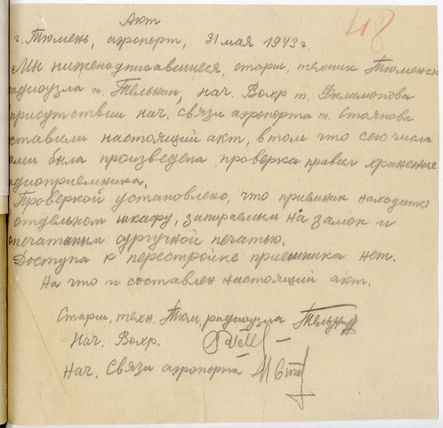 Акт
48
г. Тюмень, аэропорт, 31 мая 1943 г.
Мы нижеподписавшиеся, старш. техник Тюменск
адиоузла т. Тельнин, нач. Вохр т. Филимонова
присутствии нач. связи аэропорта т. Стоянова
ставили настоящий акт, в том что сего числа
ами была произведена проверка правил хранения
диоприемника.
Проверкой установлено, что приемник находится
отдельном шкафу, запираемым на замок и
печатанным сургучной печатью.
Доступа к перестройке приемника нет.
На что и составлен настоящий акт.
Старш. техн. Тюм. радиоузла
Нач. Вохр.
Нач. Связи аэропорта